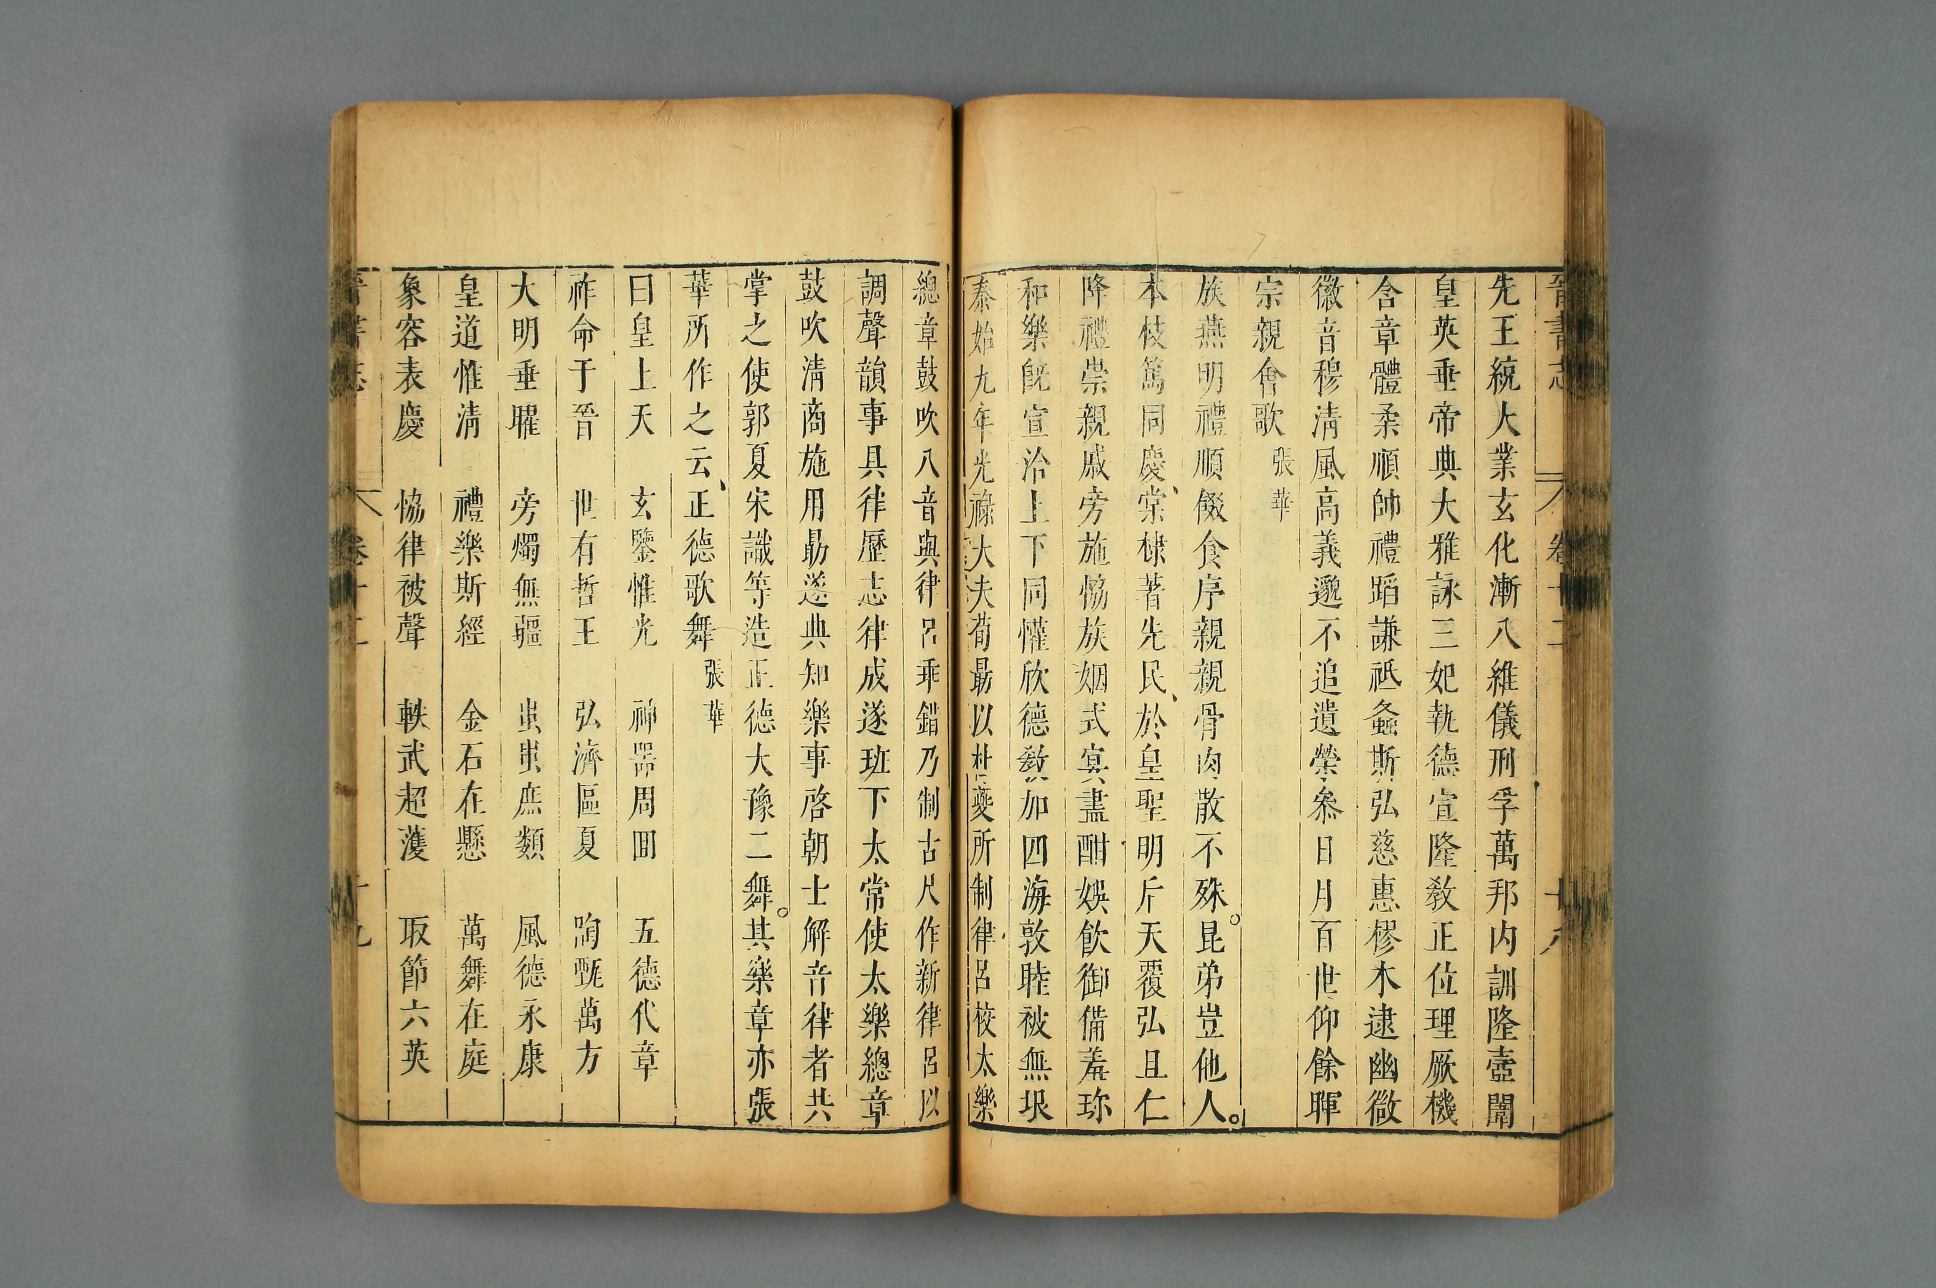 晉書志 卷十二 十八
先王統大業玄化漸八維儀刑孚萬邦内訓隆壼闈
皇英垂帝典大雅詠三妃執德宣隆敎正位理厥機
含章體柔順帥禮蹈謙祗螽斯弘慈惠樛木逮幽微
徽音穆清風高義邈不追遺榮參日月百世仰餘暉
宗親會歌 張華
族燕明禮順餟食序親親骨肉散不殊。昆弟豈他人。
本枝篤同慶、棠棣著先民、於皇聖明后天覆弘且仁
降禮崇親戚旁施協族姻式宴盡酣娛飲御備羞珍
和樂旣宣洽上下同懽欣德敎加四海敦睦被無垠
泰始九年光祿大夫荀勗以杜夔所制律呂校太樂
總章鼓吹八音與律呂乖錯乃制古尺作新律呂以
調聲韻事具律歷志律成遂班下太常使太樂總章
鼓吹清商施用勗遂典知樂事啓朝士解音律者共
掌之使郭夏宋識等造正德大豫二舞。其樂章亦張
華所作之云、正德歌舞 張華
曰皇上天 玄鑒惟光 神器周回 五德代章
祚命于晉 世有哲王 弘濟區夏 陶甄萬方
大明垂曜 旁燭無疆 蚩蚩庶類 風德永康
皇道惟清 禮樂斯經 金石在懸 萬舞在庭
象容表慶 協律被聲 軼武超濩 取節六英
晉書志 卷十二 十九